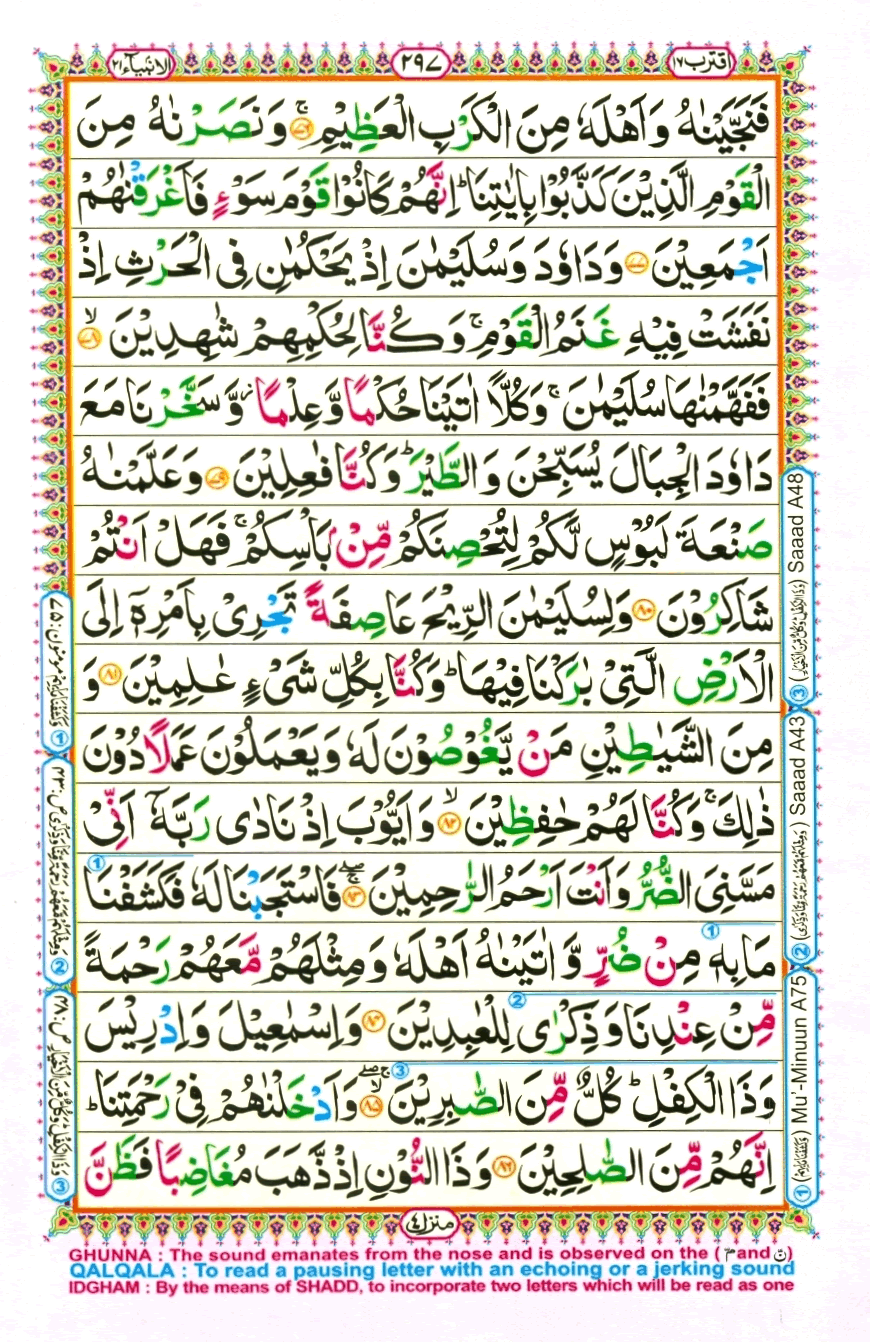 اقترب ١٧
٢٩٧
الانبیآء ٢١
فَنَجَّيْنٰهُ وَاَهْلَهٗ مِنَ الْكَرْبِ الْعَظِيْمِ ۚ‏﴿۷۶﴾ وَنَصَرْنٰهُ مِنَ
الْقَوْمِ الَّذِيْنَ كَذَّبُوْا بِاٰيٰتِنَا ؕ اِنَّهُمْ كَانُوْا قَوْمَ سَوْءٍ فَاَغْرَقْنٰهُمْ
اَجْمَعِيْنَ ﴿۷۷﴾ وَدَاوٗدَ وَسُلَيْمٰنَ اِذْ يَحْكُمٰنِ فِى الْحَرْثِ اِذْ
نَفَشَتْ فِيْهِ غَنَمُ الْقَوْمِ ۚ وَكُنَّا لِحُكْمِهِمْ شٰهِدِيْنَ ۙ﴿۷۸﴾
فَفَهَّمْنٰهَا سُلَيْمٰنَ ۚ وَكُلًّا اٰتَيْنَا حُكْمًا وَّعِلْمًا ۫ وَّسَخَّرْنَا مَعَ
دَاوٗدَ الْجِبَالَ يُسَبِّحْنَ وَالطَّيْرَ ؕ وَكُنَّا فٰعِلِيْنَ ﴿۷۹﴾ وَعَلَّمْنٰهُ
صَنْعَةَ لَبُوْسٍ لَّكُمْ لِتُحْصِنَكُمْ مِّنْۢ بَاْسِكُمْ ۚ فَهَلْ اَنْتُمْ
شَاكِرُوْنَ ﴿۸۰﴾ وَلِسُلَيْمٰنَ الرِّيْحَ عَاصِفَةً تَجْرِىْ بِاَمْرِهٖۤ اِلَى
الْاَرْضِ الَّتِىْ بٰرَكْنَا فِيْهَا ؕ وَكُنَّا بِكُلِّ شَىْءٍ عٰلِمِيْنَ ﴿۸۱﴾ وَ
مِنَ الشَّيٰطِيْنِ مَنْ يَّغُوْصُوْنَ لَهٗ وَيَعْمَلُوْنَ عَمَلًا دُوْنَ
ذٰلِكَ ۚ وَكُنَّا لَهُمْ حٰفِظِيْنَ ۙ﴿۸۲﴾ وَاَيُّوْبَ اِذْ نَادٰى رَبَّهٗۤ اَنِّىْ
مَسَّنِىَ الضُّرُّ وَاَنْتَ اَرْحَمُ الرّٰحِمِيْنَ ۚۖ﴿۸۳﴾ فَاسْتَجَبْنَا لَهٗ فَكَشَفْنَا
مَا بِهٖ مِنْ ضُرٍّ وَّاٰتَيْنٰهُ اَهْلَهٗ وَمِثْلَهُمْ مَّعَهُمْ رَحْمَةً
مِّنْ عِنْدِنَا وَذِكْرٰى لِلْعٰبِدِيْنَ ﴿۸۴﴾ وَاِسْمٰعِيْلَ وَاِدْرِيْسَ
وَذَا الْكِفْلِ ؕ كُلٌّ مِّنَ الصّٰبِرِيْنَ ۚۖ﴿۸۵﴾ وَاَدْخَلْنٰهُمْ فِىْ رَحْمَتِنَا ؕ
اِنَّهُمْ مِّنَ الصّٰلِحِيْنَ ﴿۸۶﴾ وَذَا النُّوْنِ اِذْ ذَّهَبَ مُغَاضِبًا فَظَنَّ
منزل ٤
③ Saaad A48
② Saaad A43
① Mu'-Minuun A75
GHUNNA : The sound emanates from the nose and is observed on the ( مّ and نّ )
QALQALA : To read a pausing letter with an echoing or a jerking sound
IDGHAM : By the means of SHADD, to incorporate two letters which will be read as one